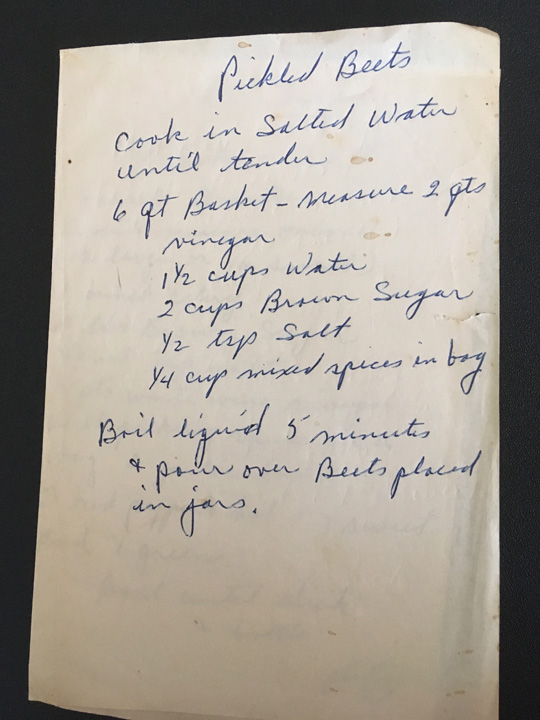 Pickled Beets
Cook in Salted Water
until tender
6 qt Basket - measure 2 qts
vinegar
1 1/2 cups Water
2 cups Brown Sugar
1/2 tsp Salt
1/4 cup mixed spices in bag
Boil liquid 5 minutes
& pour over Beets placed
in jars.